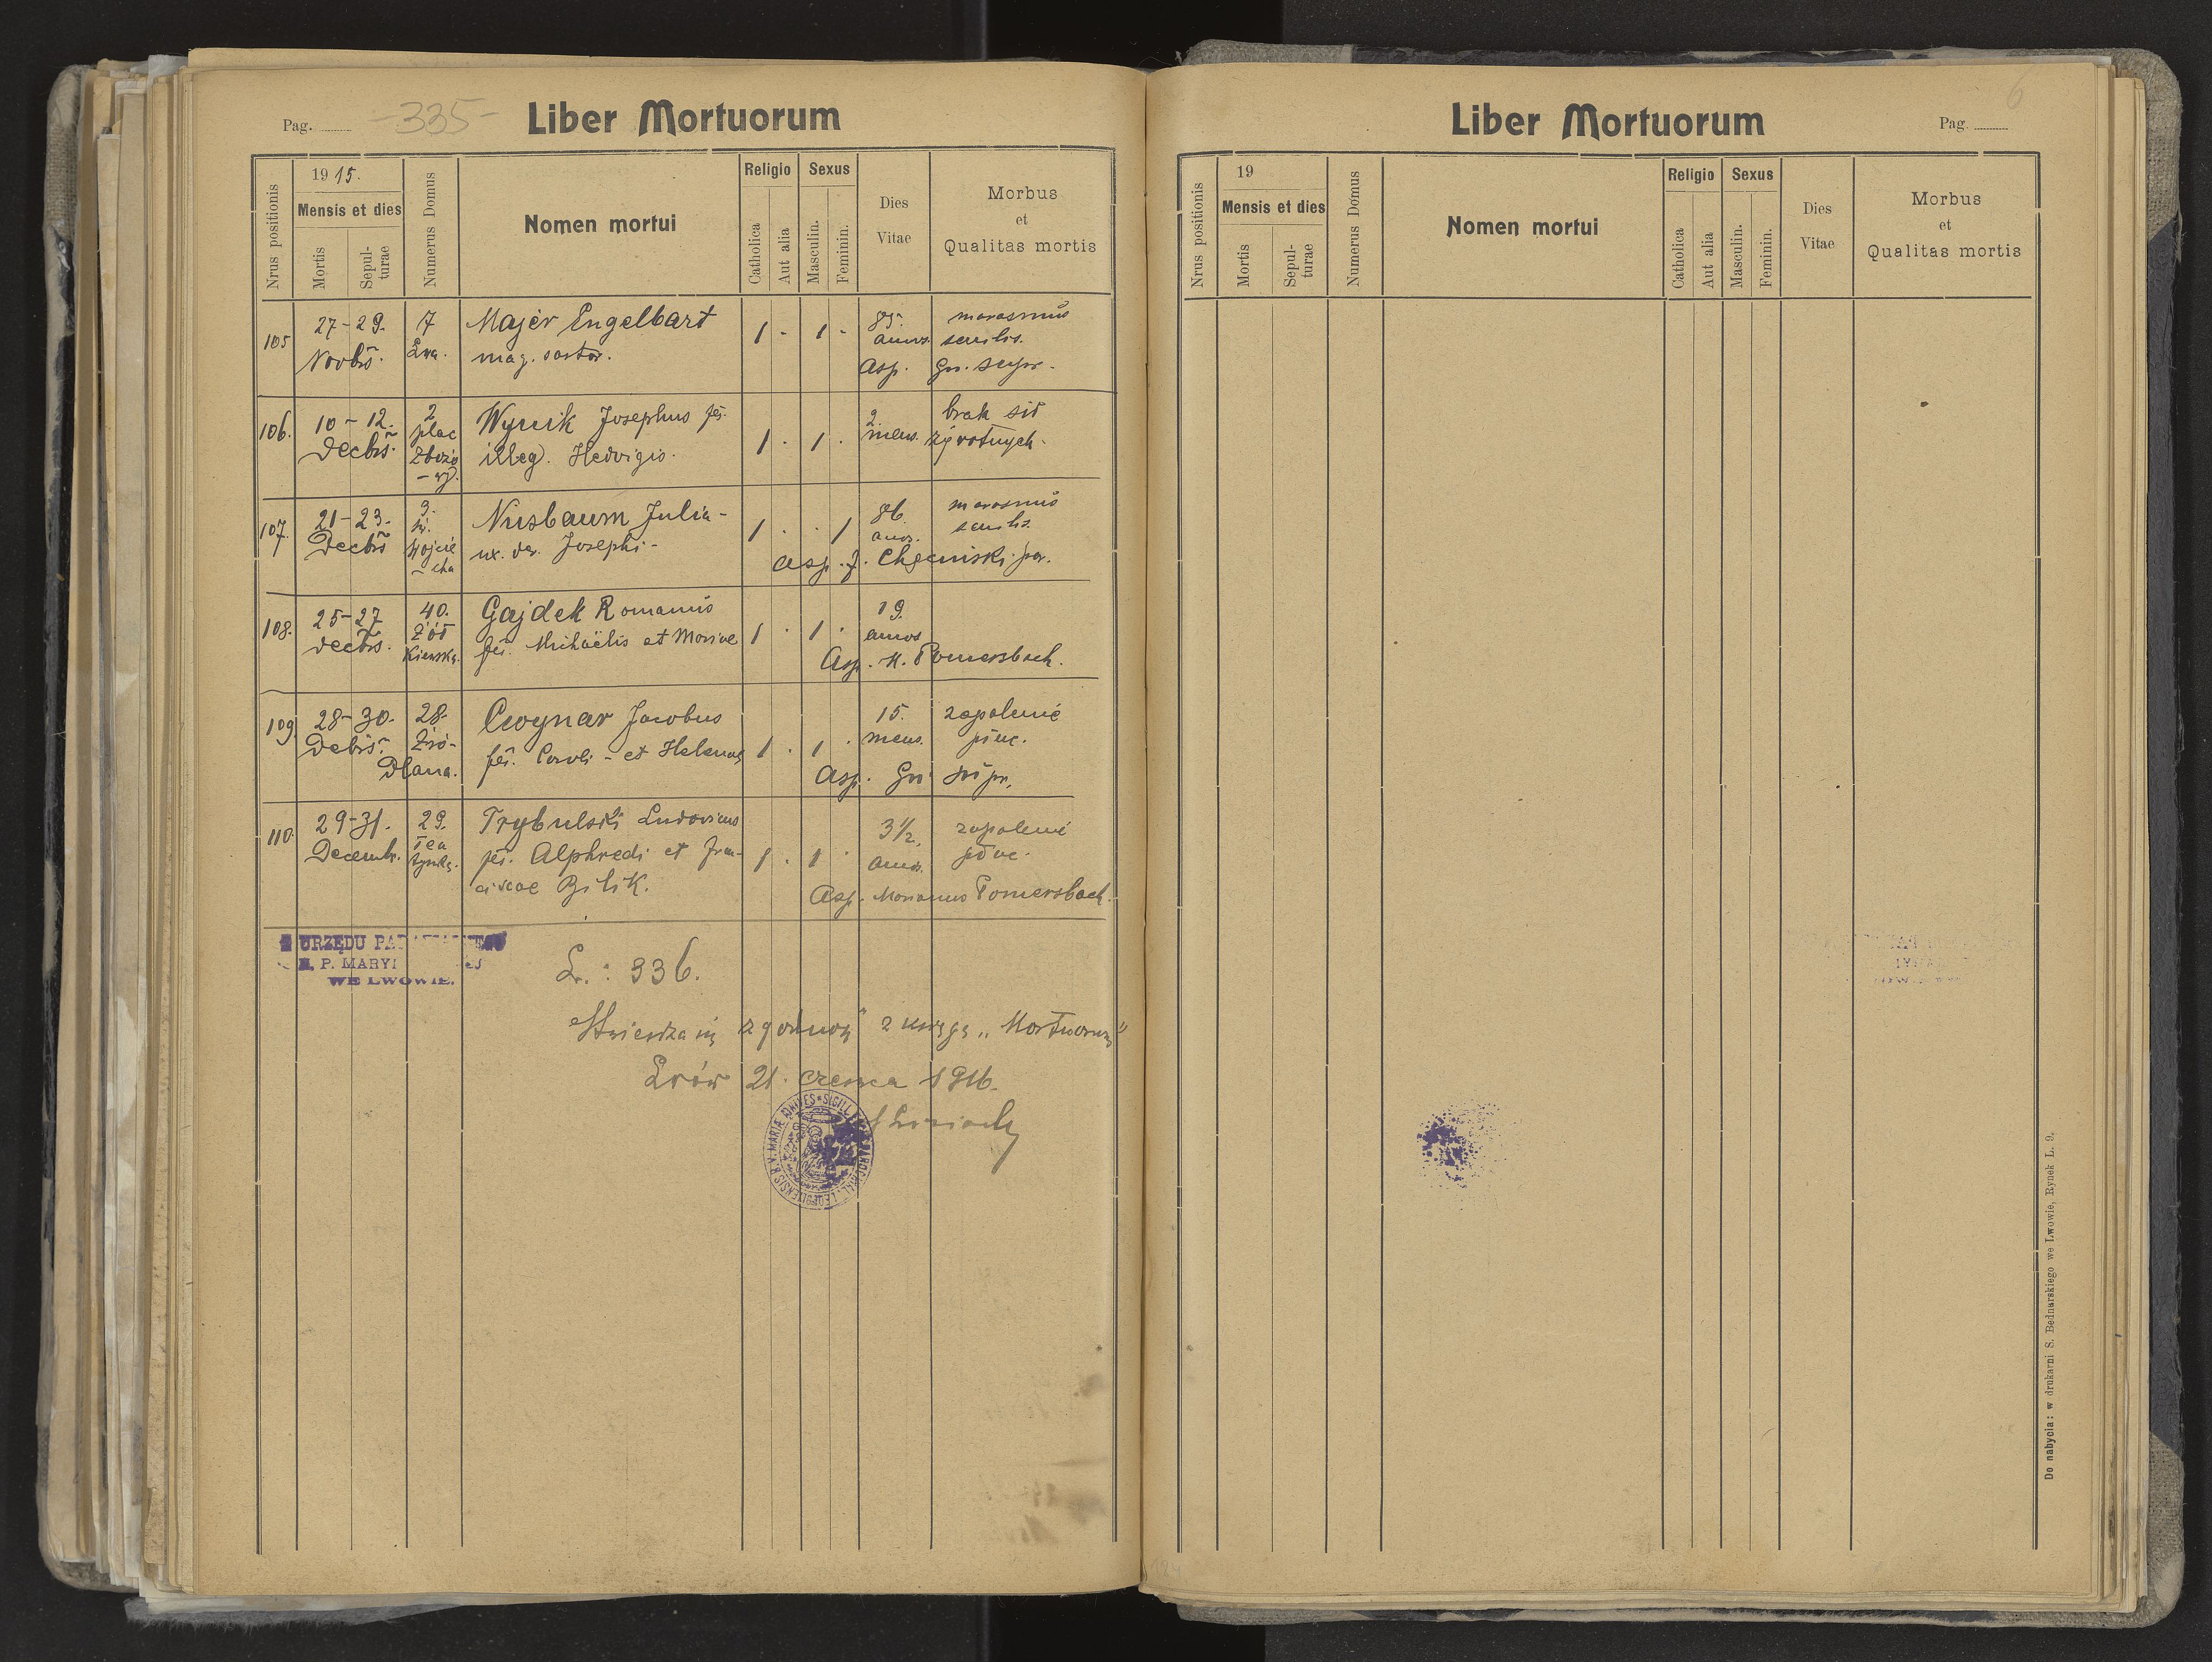 Pag. -335- Liber Mortuorum
Nrus positionis
1915.
Mensis et dies
Mortis
Sepul-
turae
Numerus Domus
Nomen mortui
Religio
Catholica
Aut alia
Sexus
Masculin.
Feminin.
Dies
Vitae
Morbus
et
Qualitas mortis
105 27-29. 17 Majer Engelbart 1 - 1 - 85. marasmus
Novbr. Lwa. mag. sartor. annor. senilis.
Asp. Gr.
106. 10-12. 2 Wyrwik Josephus fil. 1 . 1 . 2 brak sił
Decbr. plac illeg. Hedvigis. mens. żywotnych.
Zbożo
-wy.
107. 21-23. 3. Nusbaum Julia- 1 . . 1 86 marasmus
Decbr św. ux. Josephi- annor. senilis.
Wojcie
-cha Asp. J. Chęciński
108. 25-27 40. Gajdek Romanus 1 . 1 . 19.
Decbr. Żół fil. Michaëlis et Mariae annos
kiewska. Asp. M. Pomersbach.
109. 28-30. 28. Cwynar Jacobus 1 . 1 . 15. zapalenie
Debr. Źró- fil. Caroli - et Helenae mens. płuc.
dlana. Asp. Gr.
110. 29-31. 29. Trybulski Ludovicus 1 . 1 . 3½ zapalenie
Decembr. Tea fil. Alphredi et Fran- annor. płuc.
tyńska. ciscae Bilik.
Asp. Marianus Pomersbach.
URZĘDU
P. MARYI
WE LWOWIE.
L.: 336.
Stwierdza się zgodność z księgą „Mortuorum"
Lwów 21. czerwca 1916.
SIGILL. PAROCHIAL. LEOPOLIENSIS B. V. MARIAE AD NIVES
Liber Mortuorum Pag.
6
Nrus positionis
19
Mensis et dies
Mortis
Sepul-
turae
Numerus Domus
Nomen mortui
Religio
Catholica
Aut alia
Sexus
Masculin.
Feminin.
Dies
Vitae
Morbus
et
Qualitas mortis
Do nabycia: w drukarni S. Bednarskiego we Lwowie, Rynek L. 9.